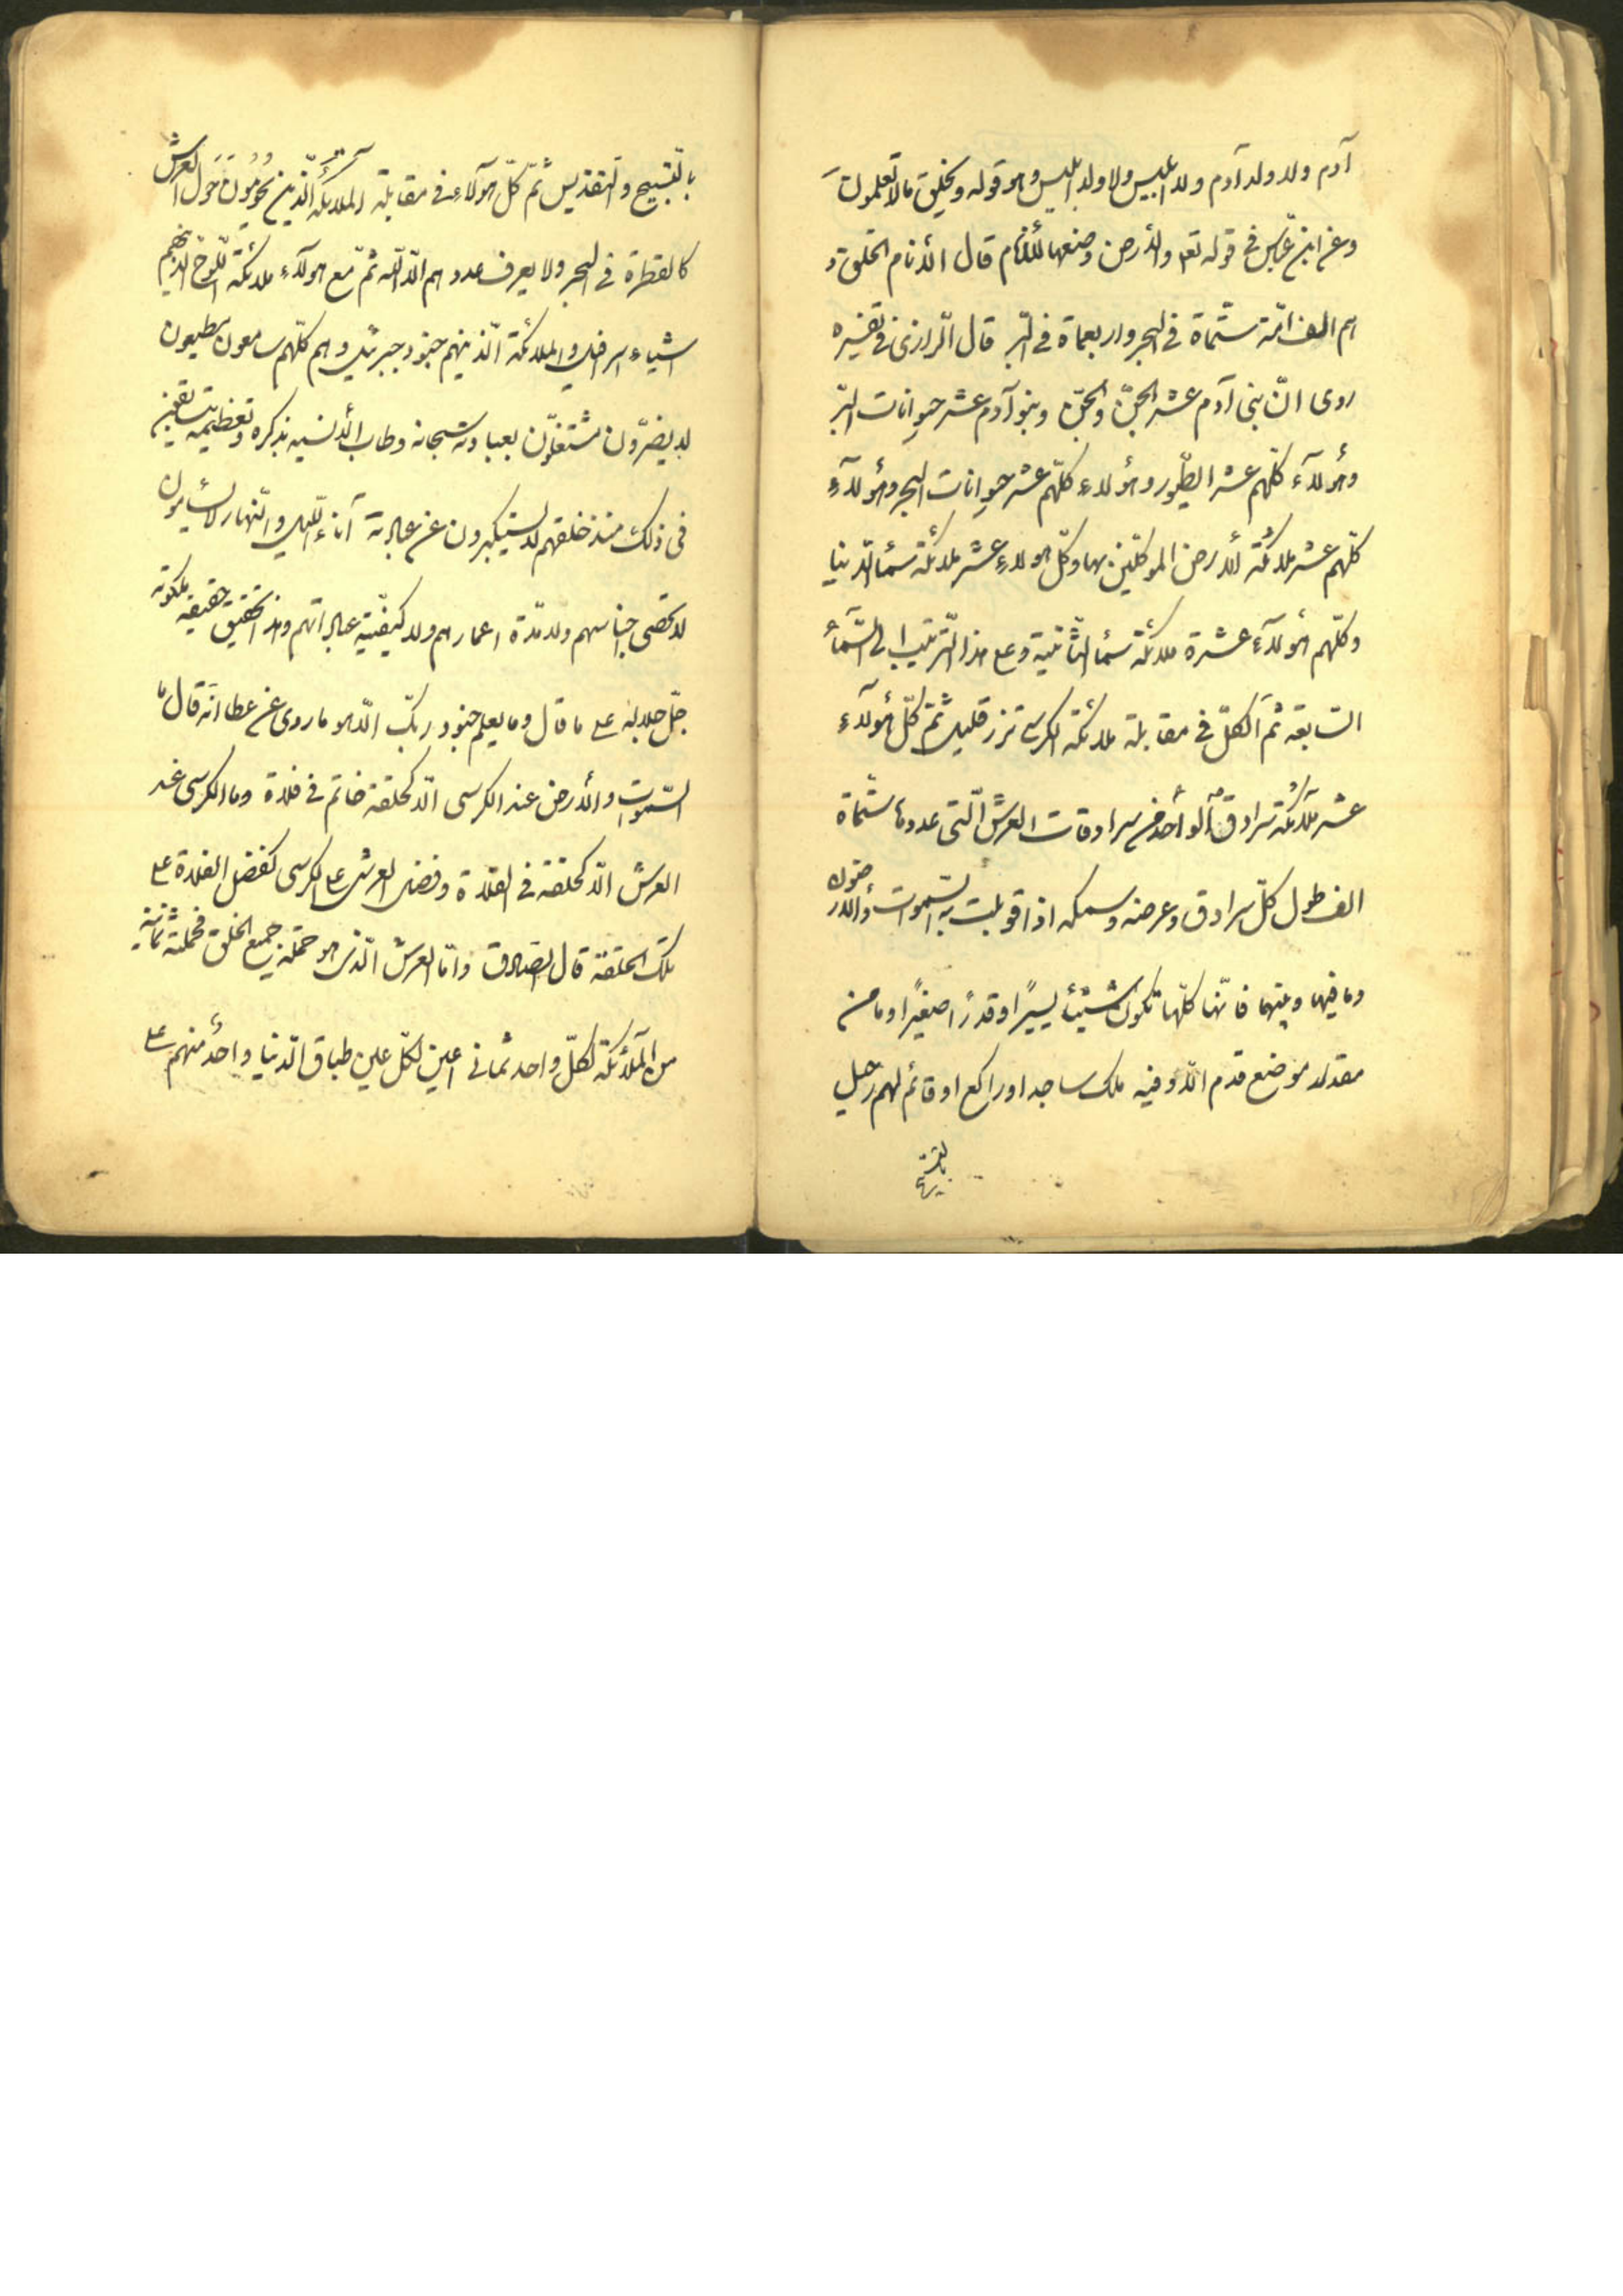 آدم ولا ولد آدم ولا ابلیس ولا ولد ابلیس وهو قوله ویخلق ما لا تعلمون
وعن ابن عباس فی قوله تعه والأرض وضعها للأنام قال الأنام الخلق و
هم الف امّة ستماة فی البحر واربعماة فی البّر قال الرازی فی تفسیره
روی انّ بنی آدم عشر الجنّ والجنّ وبنو آدم عشر حیوانات البّر
وهؤلآء کلّهم عشر الطّیور وهؤلاء کلّهم عشر حیوانات البحر وهؤلآء
کلّهم عشر ملائکة الأرض الموکلّین بها وکلّ هولاء عشر ملائکة سمأ الدّنیا
وکلّهم هؤلآء عشرة ملائکة سمأ الثّانیة وعلی هذا التّرتیب الی السّمأ
السّابعة ثمّ الکلّ فی مقابلة ملائکة الکرسی نزر قلیل ثمّ کلّ هؤلاء
عشر ملآئکة سرادق الواحد من سرادقات العرش الّتی عددها ستماة
الف طول کلّ سرادق وعرضه وسمکه اذا قوبلت به السّموات والارضون
وما فیها وبینهما فانّها کلّها تکون شیئاً یسیراً او قدراً صغیراً وما من
مقدار موضع قدم الّا وفیه ملک ساجد او راکع او قائم لهم زجل
بالتسبیح
بالتّسبیح والتّقدیس ثمّ کلّ هولآء فی مقابلة الملائکة الّذین یحومون حول العرش
کالقطرة فی البحر ولا یعرف عددهم الّا اللّه ثمّ مع هولآء ملائکة اللّوح الّذینهم
اشیاء اسرافیل والملائکة الّذینهم جنود جبرئیل وهم کلّهم سامعون مطیعون
لا یفترّون مشتغلّون بعبادته سبحانه رطاب الألسنه بذکره وتعظیمه یتسابقون
فی ذلک منذ خلقهم لا یستکبرون عن عبادته آناء اللّیل والنّهار لا یسأمون
لا تحصی اجناسهم ولا مدّة اعمارهم ولا کیفیّة عباداتهم وهذا تحقیق حقیقة ملکوته
جلّ جلاله علی ما قال وما یعلم جنود ربّک الّا هو ما روی عن عطا انّه قال ما
السّموات والأرض عند الکرسی الّا کحلقة خاتم فی فلاة وما الکرسی عند
العرش الّا کحلقة فی الفلاة وفضل العرش علی الکرسی کفضل الفلاة علی
تلک الحلقة قال الصّادق وامّا العرش الّذی هو حملة جمیع الخلق فحملته ثمانیة
من الملآئکة لکلّ واحد ثمانی اعین کلّ عین طباق الّدنیا واحد منهم علی